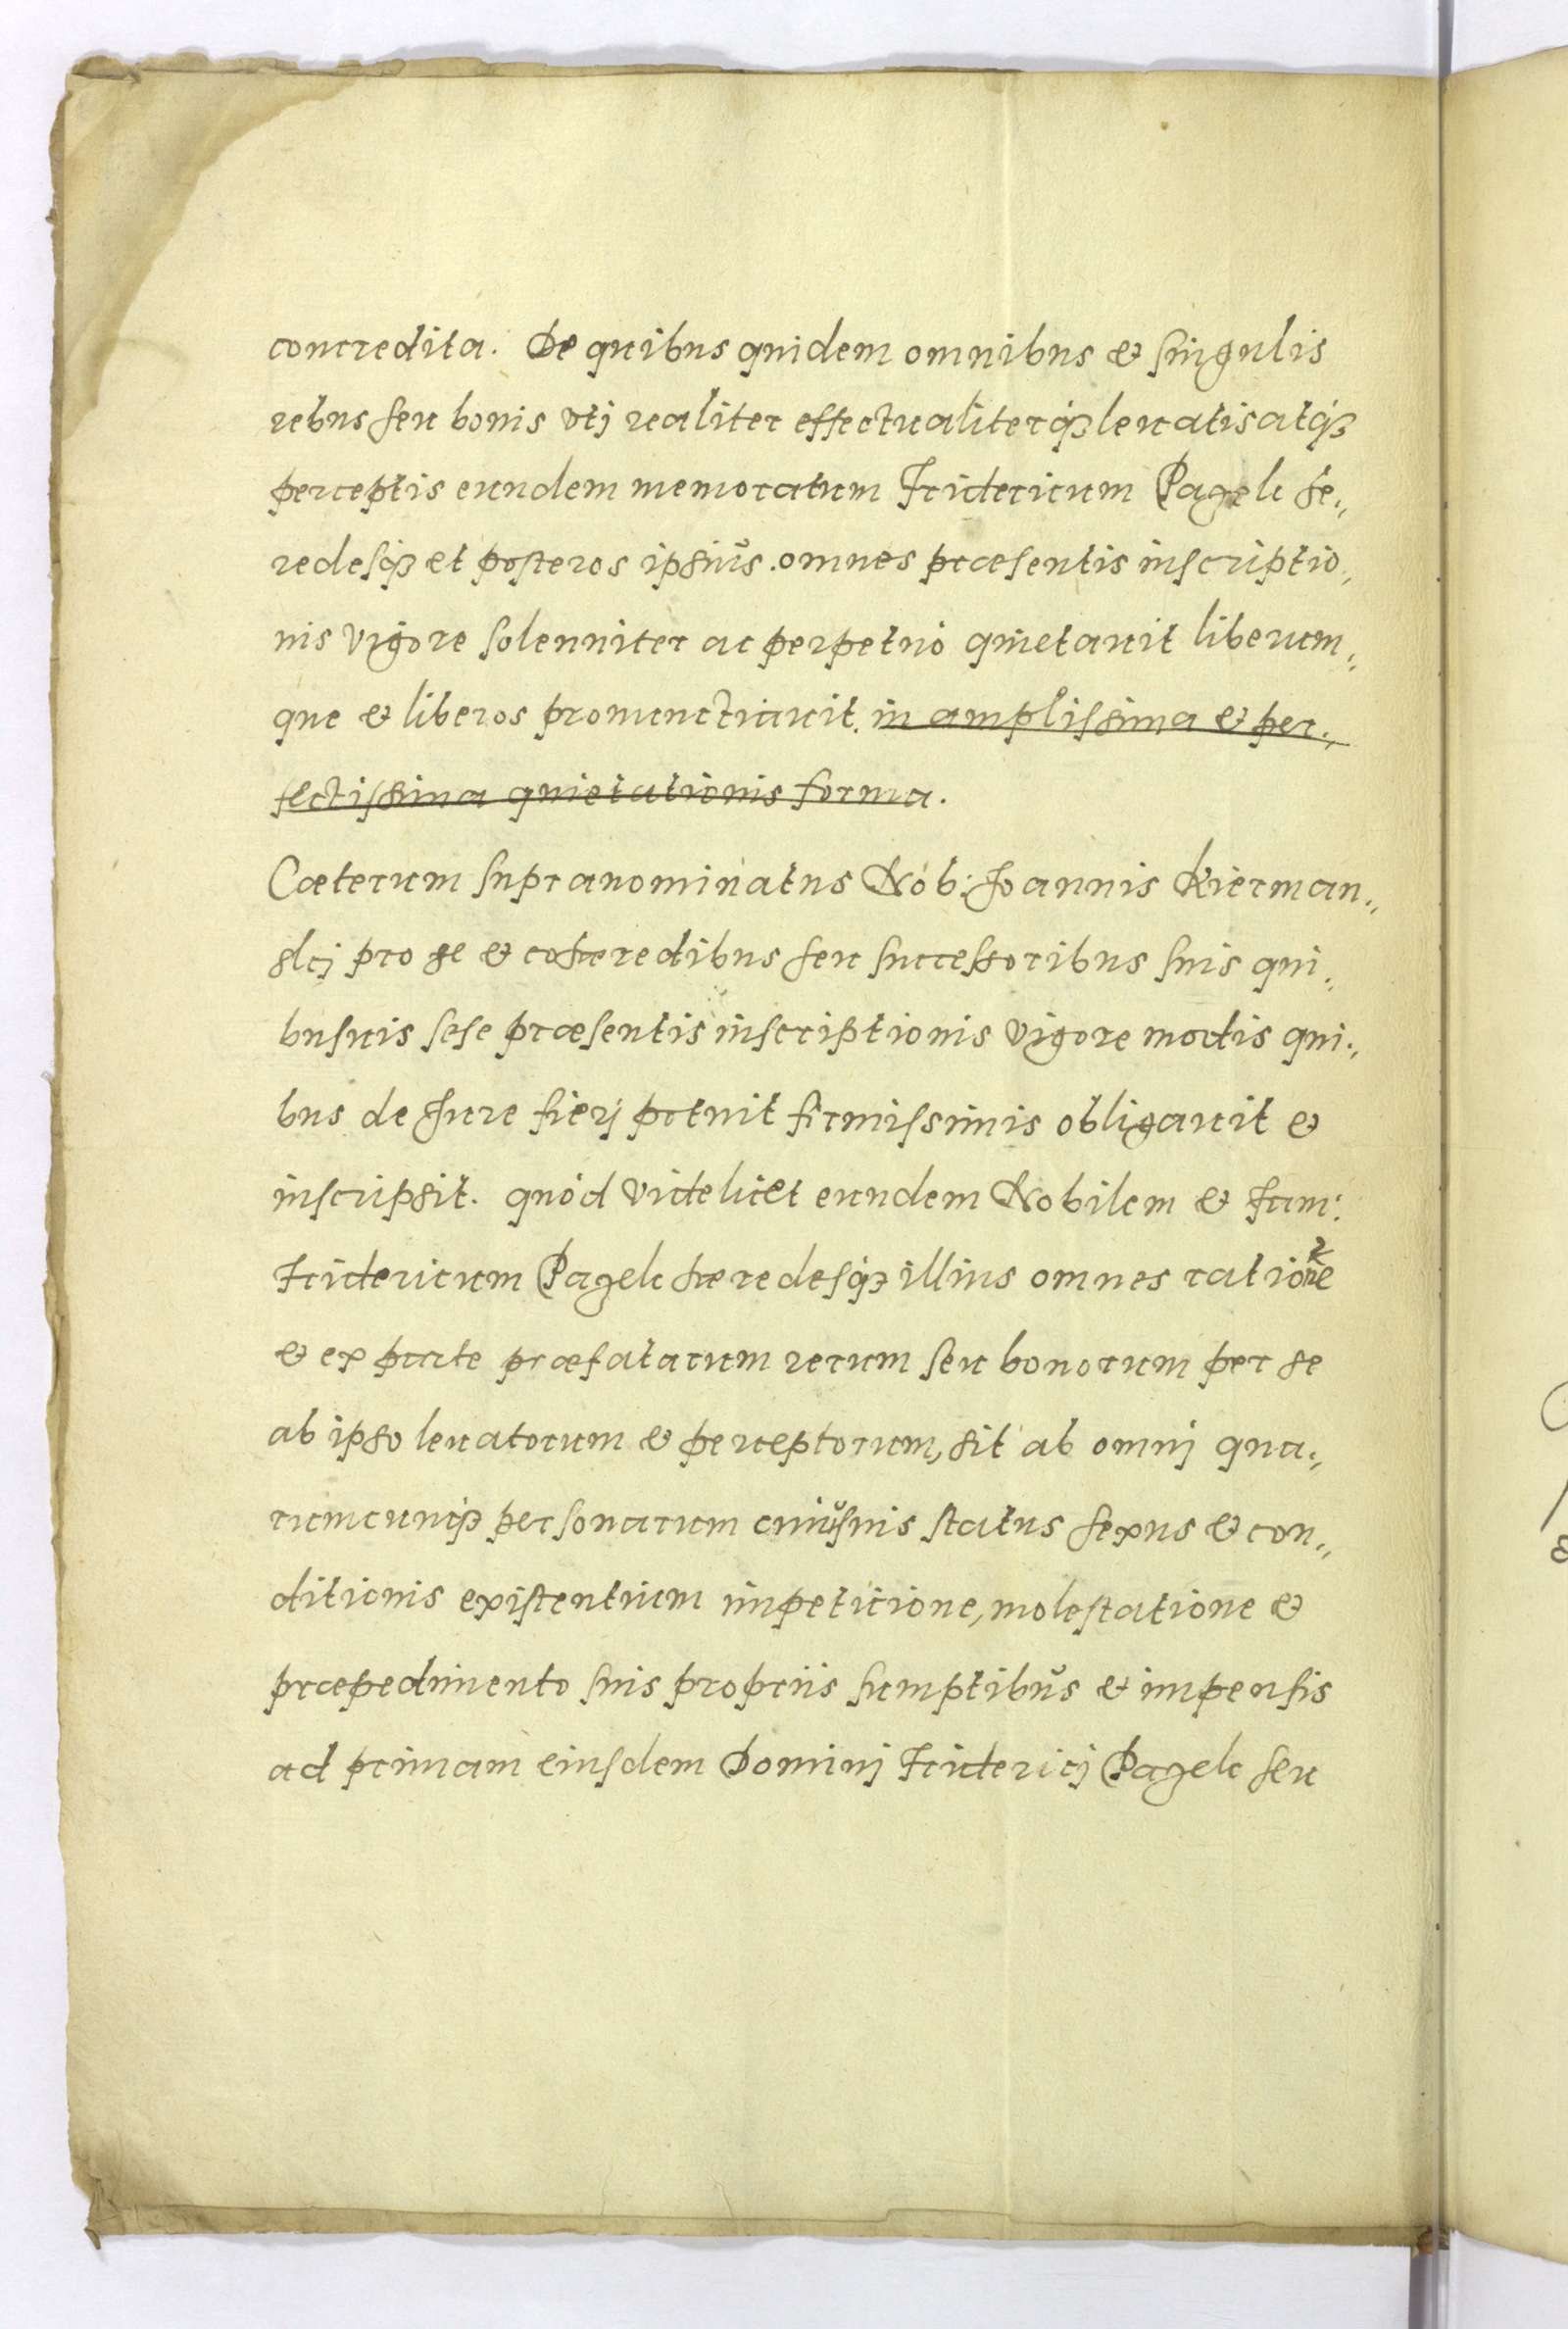 concredita. De quibus quidem omnibus & singulis
rebus seu bonis vtj realiter effectualiterq́ꝫ leuatis atq́ꝫ
perceptis eundem memoratum Fridericum Pagelc he„
redesq́ꝫ et posteros ipsiŭs. omnes præsentis inscriptio„
nis vigore solenniter ac perpetuò quietauit liberum„
que & liberos pronunctiauit. in amplissima & per„
fectissima quietationis forma.
Cæterum supranominatus Nob: Joannis Kierman„
slcj pro se & cohæredibus seu successoribus suis qui„
busuis sese præsentis inscriptionis vigore modis qui„
bus de Jure fierj potuit firmissimis obligauit &
inscripsit. quòd videlicet eundem Nobilem & Fam:
Fridericum Pagelc hæredesq́ꝫ illius omnes ratione
& ex parte præfatarum rerum seu bonorum per se
ab ipso leuatorum & perceptorum, sit ab omnj qua„
rumcunq́ꝫ personarum cuiŭsuis status sexus & con„
ditionis existentium impeticione, molestatione &
præpedimento suis propriis sumptibŭs & impensis
ad primam eiusdem Dominj Fridericj Pagelc seu